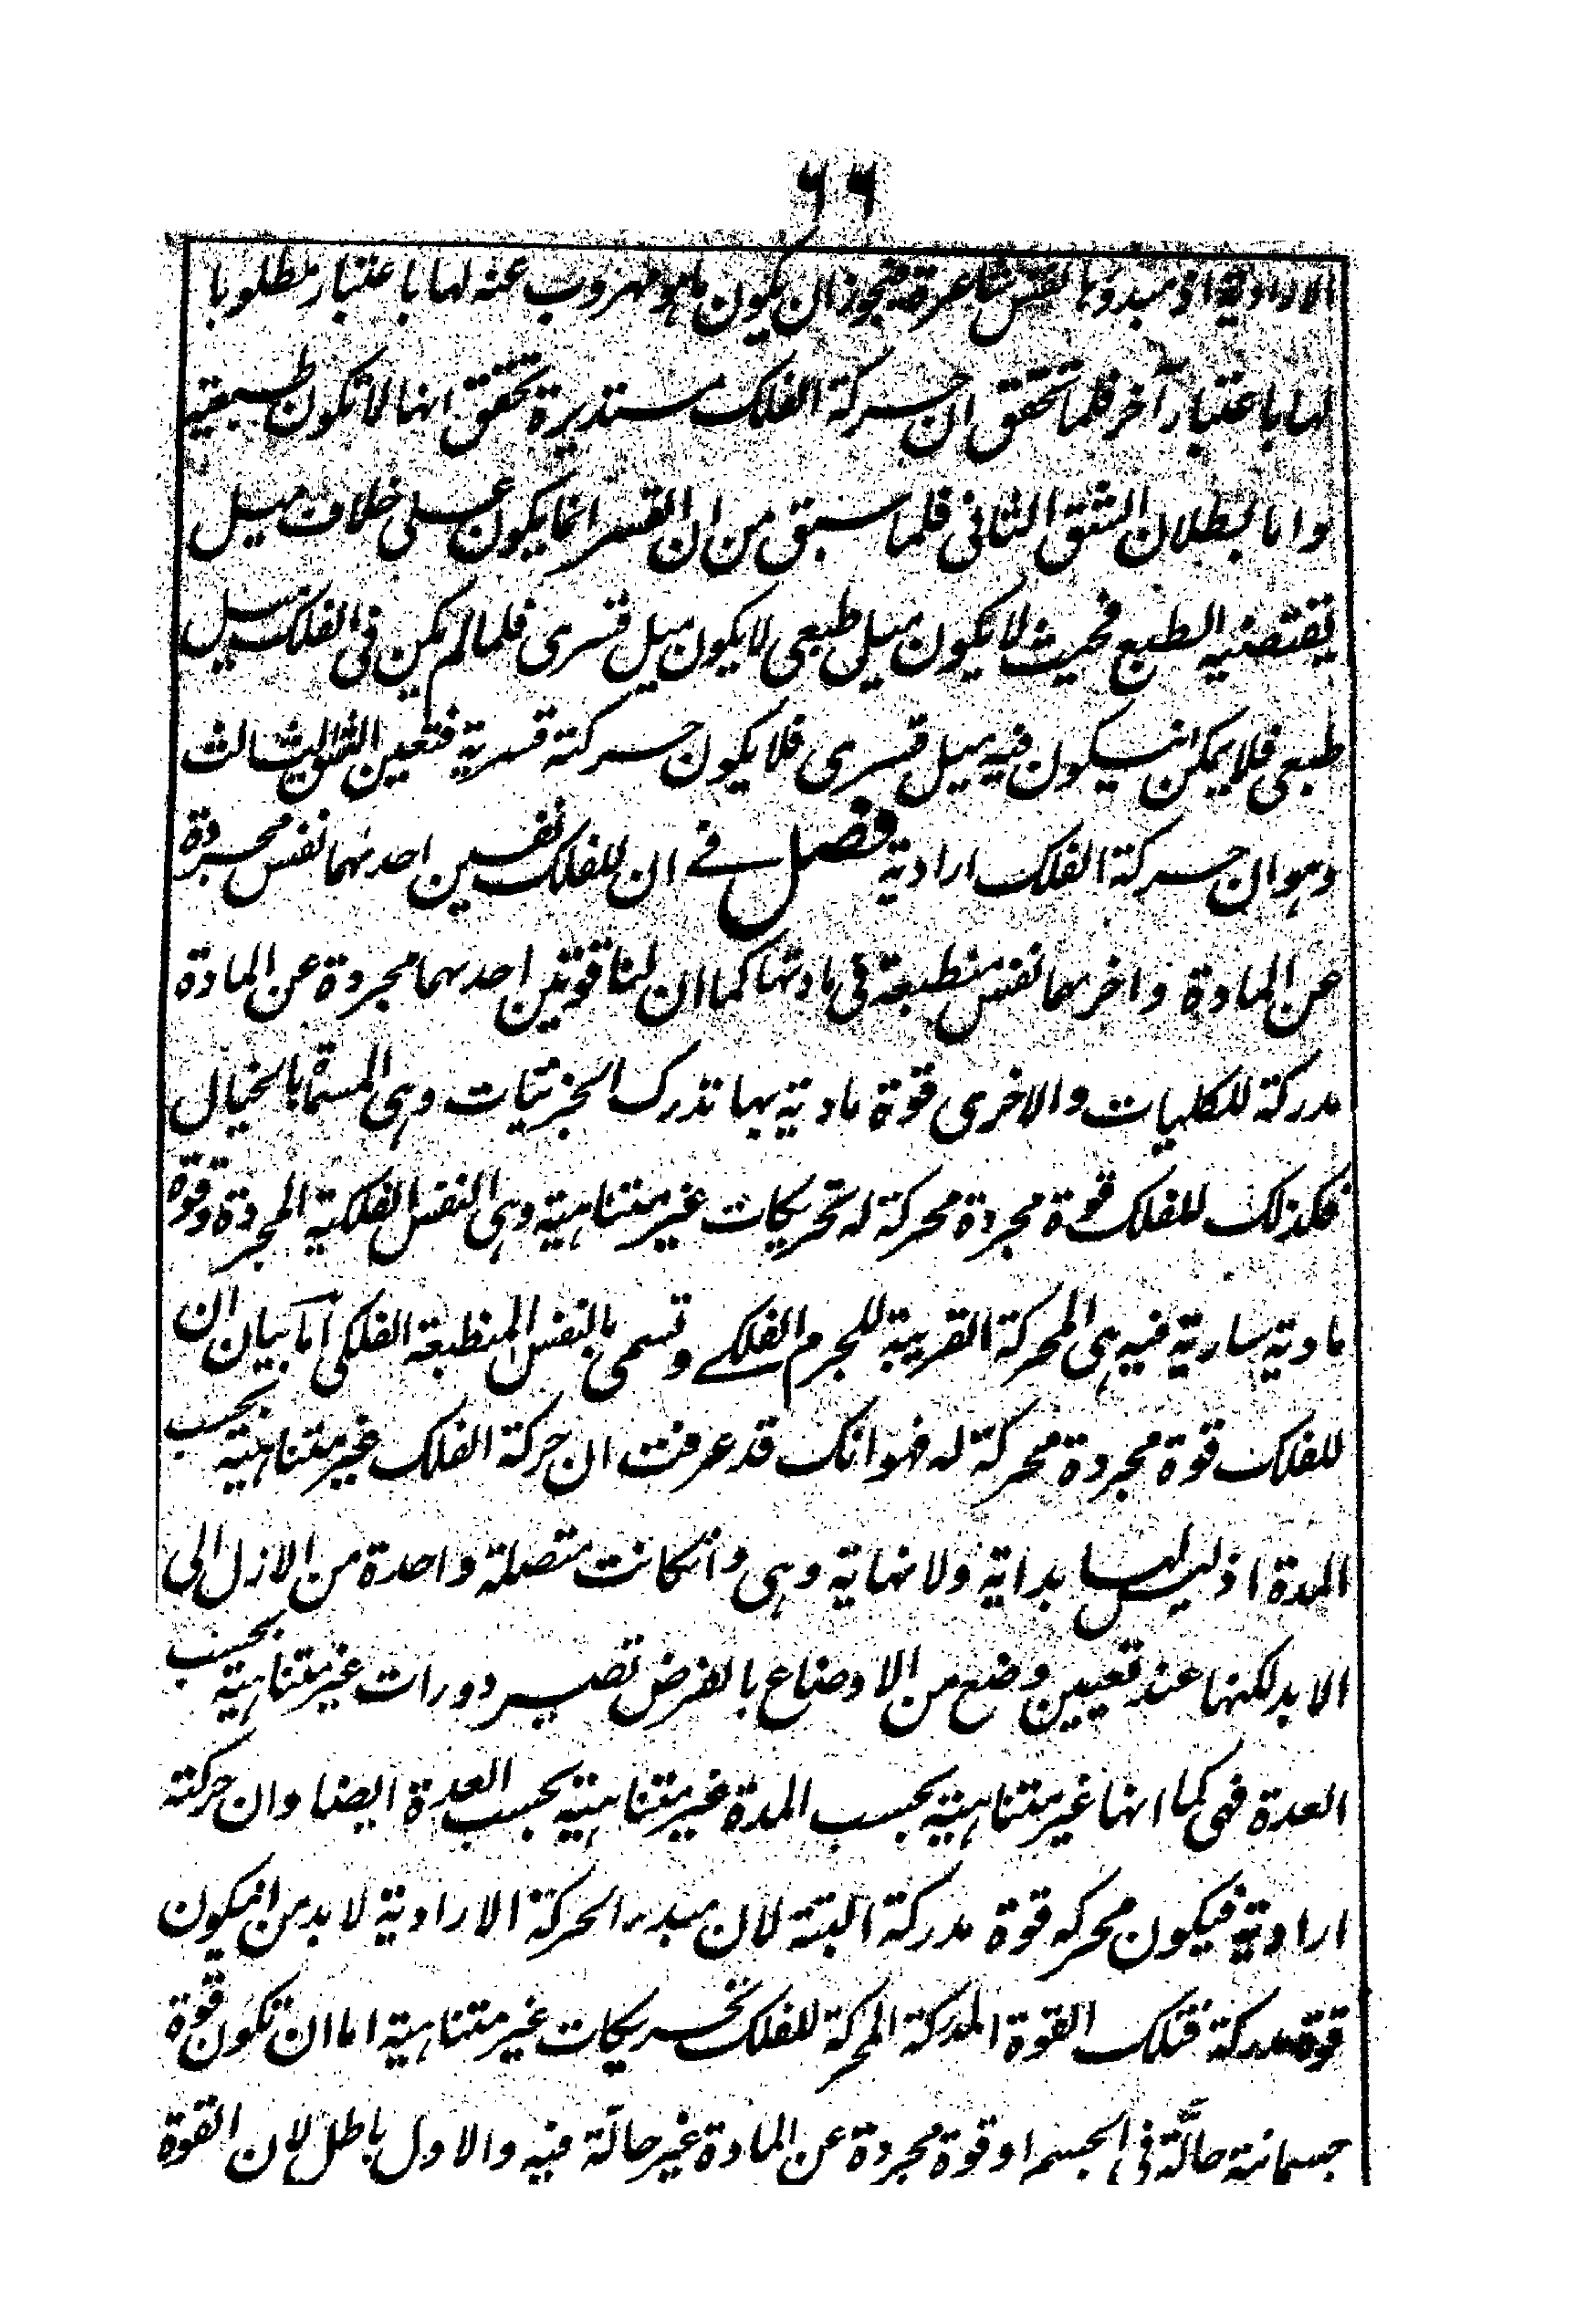 ٦٦
الارادیة اذ مبدؤہا نفس شاعرة فیجوز ان یکون ما ہو مہروب عنہ لہا باعتبار مطلوبا
لہا باعتبار آخر فلما تحقق ان حرکة الفلک مستدیرة تحقق انہا لا تکون طبیعیة
واما بطلان الشق الثانی فلما سبق من ان القسر انما یکون علی خلاف میل
یقتضیہ الطبع فحیث لا یکون میل طبعی لا یکون میل قسری فلما لم یکن فی الفلک میل
طبعی فلا یمکن انیکون فیہ میل قسری فلا یکون حرکتہ قسریة فتعین الشق الثالث
وہو ان حرکة الفلک ارادیة فصل فے ان للفلک نفسین احدٮہما نفس مجردة
عن المادة واخرٮہما نفس منطبعة فی مادتہا کما ان لنا قوتین احدٮہما مجردة عن المادة
مدرکة للکلیات والاخری قوة مادیة بہا تدرک الجزئیات وہی المسماة بالخیال
فکذلک للفلک قوة مجردة محرکة لہ تحریکات غیر متناہیة وہی النفس الفلکیة المجردة وقوة
مادیة ساریة فیہ ہی المحرکة القریبة للجرم الفلکے وتسمی بالنفس المنطبعة الفلکی اما بیان ان
للفلک قوة مجردة محرکة لہ فہو انک قد عرفت ان حرکة الفلک غیر متناہیة بحسب
المدة اذ لیس لہا بدایة ولا نہایة وہی وانکانت متصلة واحدة من الازل الی
الابد لکنہا عند تعیین وضع من الاوضاع بالفرض تصیر دورات غیر متناہیة بحسب
العدة فہی کما انہا غیر متناہیة بحسب المدة غیر متناہیة بحسب العدة ایضا وان حرکتہ
ارادیة فیکون محرکہ قوة مدرکة البتة لان مبدء الحرکة الارادیة لا بد من انیکون
قوة مدرکة فتلک القوة المدرکة المحرکة للفلک تحریکات غیر متناہیة اما ان تکون قوة
جسمانیة حالَّة فی الجسم او قوة مجردة عن المادة غیر حالة فیہ والاول باطل لان القوة